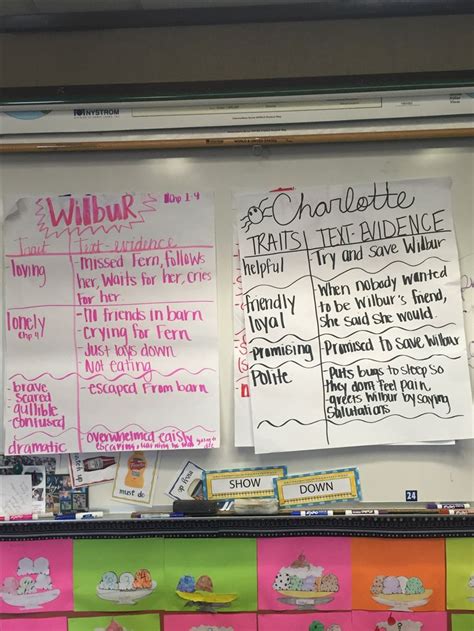 NYSTROM
Wilbur
Chp 1-4
Trait
Text-evidence
loving
- Missed Fern, follows
her, Waits for her, cries
for her.
lonely
Chp 4
- No friends in barn
- Crying for Fern
- Just lays down
- Not eating
- brave
- scared
gullible
confused
- escaped from barn
dramatic
overwhelmed eaisly
Charlotte
TRAITS
TEXT-EVIDENCE
helpful
Try and save Wilbur
friendly
loyal
When nobody wanted
to be Wilbur's friend,
she said she would.
Promising
Promised to save Wilbur
Polite
- Puts bugs to sleep so
they dont feel pain.
- greets Wilbur by saying
Salutations
must do
SHOW
DOWN
24